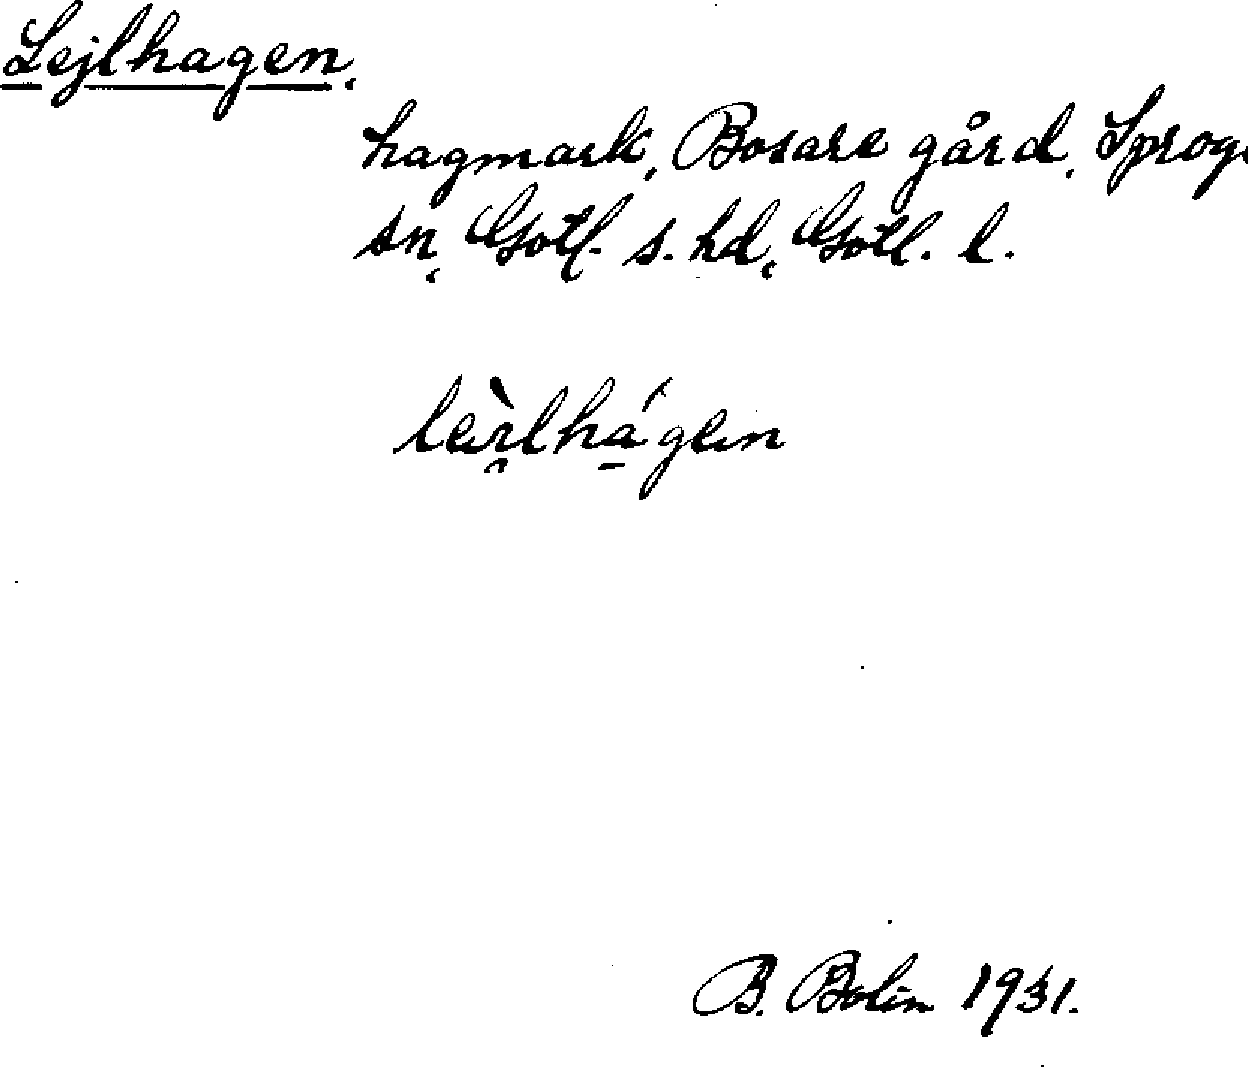 Lejlhagen.
hagmark, Bosare gård, Sproge
sn, Gotl. s. hd, Gotl. l.
B. Bolin 1931.